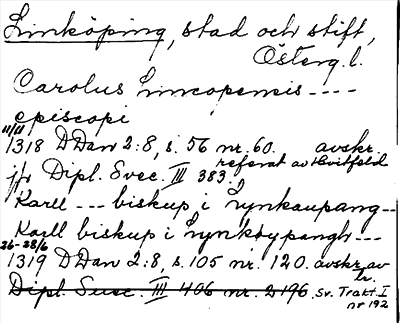 Linköping, stad och stift,
Österg. l.
Carolus Lincopensis ----
episcopi
11/11
1318 DDan 2:8, s. 56 nr. 60. avskr.
referat av Hvitfeld
jfr Dipl. Svec. III 383.
Karll --- biskup i Lynkaupang--
Karll biskup i Lynkøypangh---
26-28/6
1319 DDan 2:8, s. 105 nr. 120. avskr. av
tr.
Dipl. Suec. III 406 nr. 2196. Sv. Trakt. I
nr 192